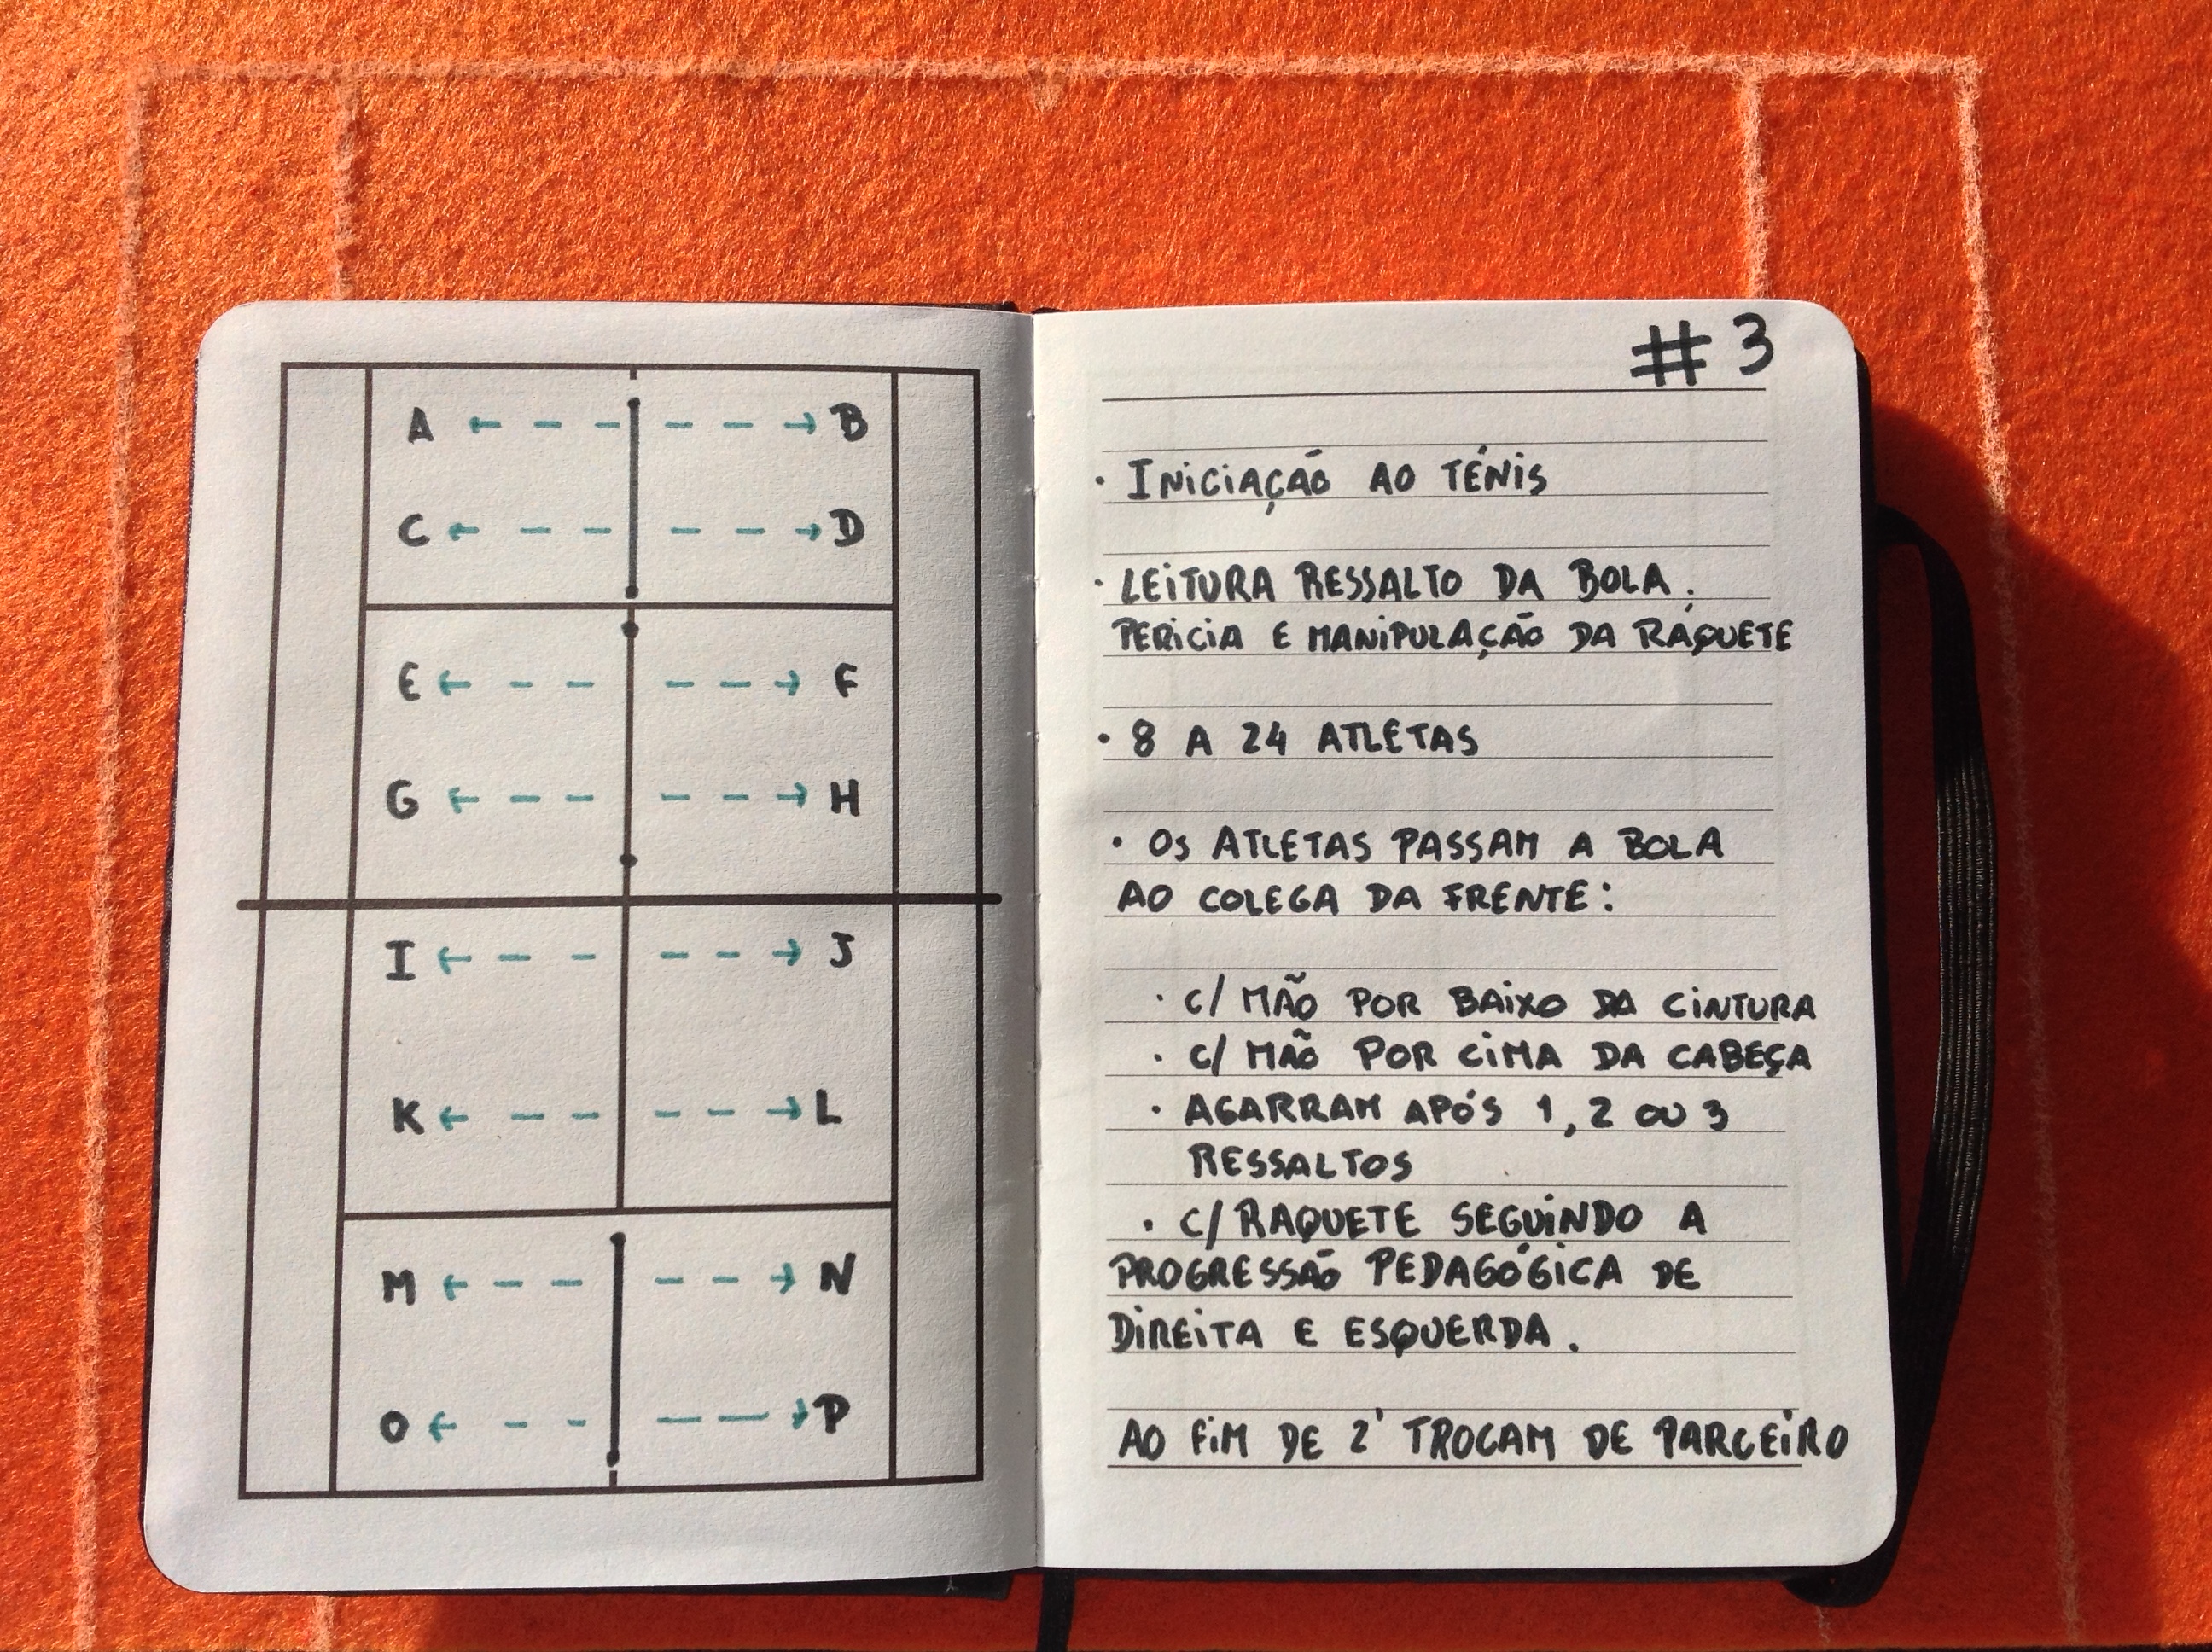 A B
C D
E F
G H
I J
K L
M N
O P
#3
· INICIAÇÃO AO TÉNIS
· LEITURA RESSALTO DA BOLA.
PERICIA E MANIPULAÇÃO DA RAQUETE
· 8 A 24 ATLETAS
· OS ATLETAS PASSAM A BOLA
AO COLEGA DA FRENTE:
· C/ MÃO POR BAIXO DA CINTURA
· C/ MÃO POR CIMA DA CABEÇA
· AGARRAM APÓS 1, 2 OU 3
RESSALTOS
· C/ RAQUETE SEGUINDO A
PROGRESSÃO PEDAGÓGICA DE
DIREITA E ESQUERDA.
AO FIM DE 2' TROCAM DE PARCEIRO